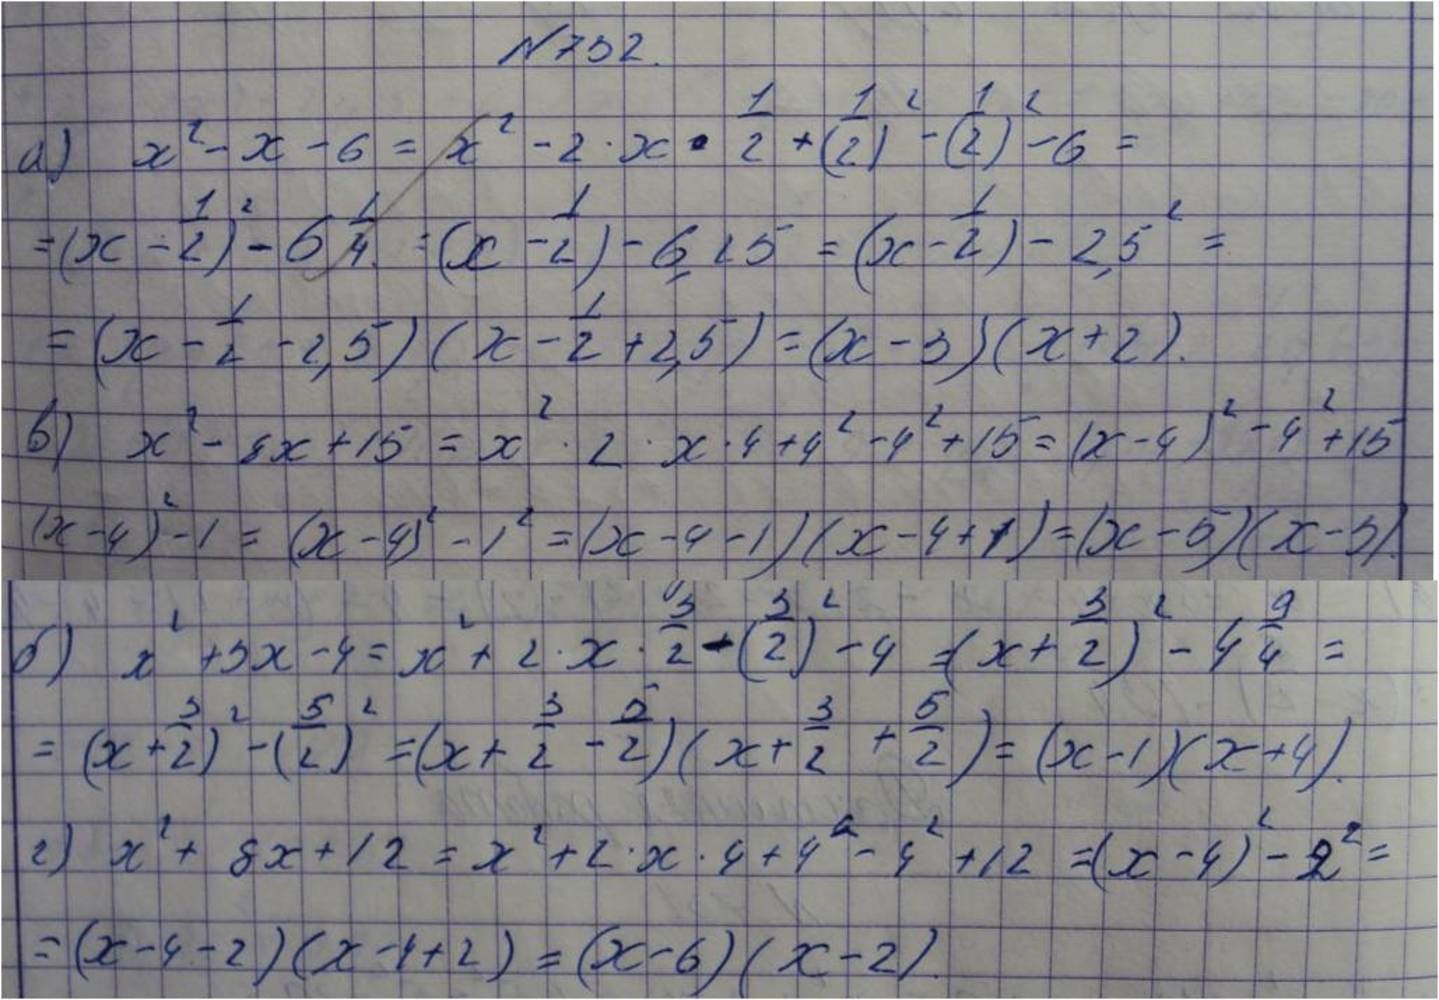 N732.
а) x² - x - 6 = x² - 2 · x · 1/2 + (1/2)² - (1/2)² - 6 =
= (x - 1/2)² - 6 1/4 = (x - 1/2) - 6,25 = (x - 1/2) - 2,5² =
= (x - 1/2 - 2,5) (x - 1/2 + 2,5) = (x - 3) (x + 2).
в) x² - 8x + 15 = x² · 2 · x · 4 + 4² - 4² + 15 = (x - 4)² - 4² + 15
(x - 4)² - 1 = (x - 4)² - 1² = (x - 4 - 1) (x - 4 + 1) = (x - 5) (x - 3).
б) x² + 3x - 4 = x² + 2 · x · 3/2 - (3/2)² - 4 = (x + 3/2)² - 4 9/4 =
= (x + 3/2)² - (5/2)² = (x + 3/2 - 5/2) (x + 3/2 + 5/2) = (x - 1) (x + 4).
г) x² + 8x + 12 = x² + 2 · x · 4 + 4² - 4² + 12 = (x - 4)² - 2² =
= (x - 4 - 2) (x - 4 + 2) = (x - 6) (x - 2).